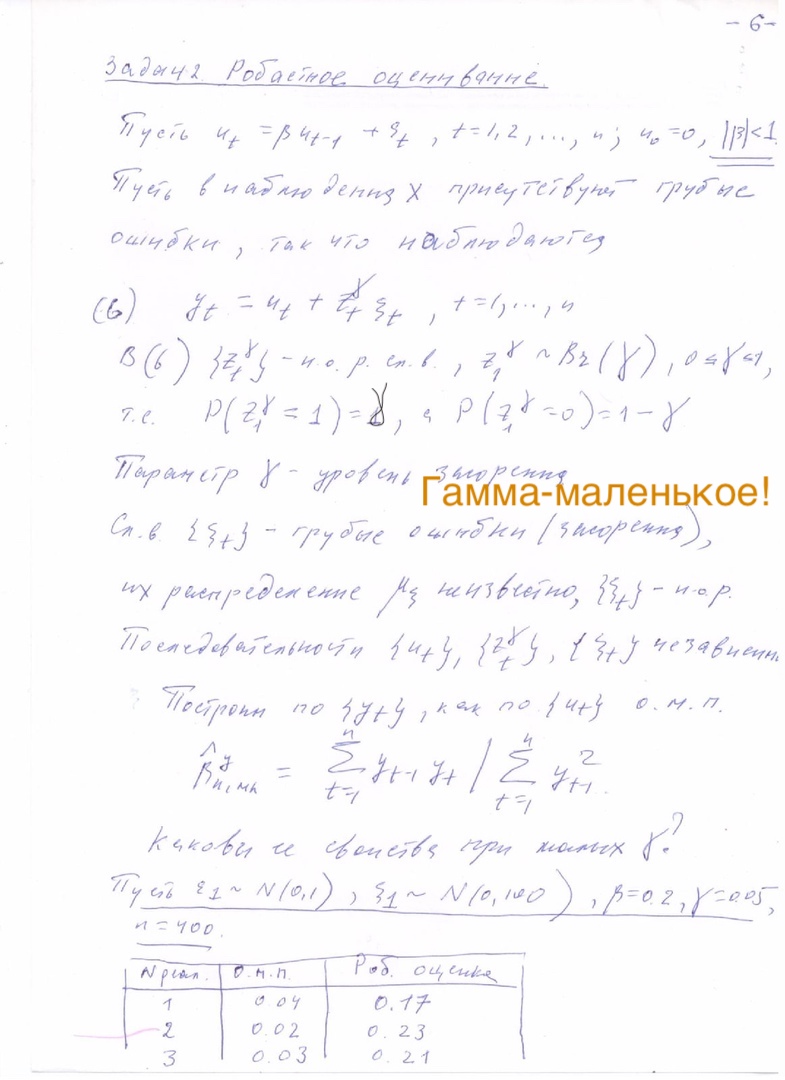 - 6 -
Задача 2. Робастное оценивание.
Пусть u_t = βu_{t-1} + ε_t, t=1,2,...,n; u_0=0, |β|<1.
Пусть в наблюдениях присутствуют грубые
ошибки, так что наблюдаются
(6) y_t = u_t + z_t^γ ξ_t, t=1,...,n
В (6) {z_t^γ} - н.о.р. сл.в., z_1^γ ~ Br(γ), 0≤γ≤1,
т.е. P(z_1^γ = 1) = γ, а P(z_1^γ = 0) = 1-γ
Параметр γ - уровень засорения
Гамма-маленькое!
Сл.в. {ξ_t} - грубые ошибки (засорения),
их распределение μ_ξ неизвестно, {ξ_t} - н.о.р.
Последовательности {u_t}, {z_t^γ}, {ξ_t} независимы
Построим по {y_t}, как по {u_t} о.м.п.
β̂^y_{n,мп} = ∑_{t=1}^n y_{t-1} y_t / ∑_{t=1}^n y_{t-1}^2.
Каковы ее свойства при малых γ?
Пусть ε_1 ~ N(0,1), ξ_1 ~ N(0,100), β=0.2, γ=0.05,
n=400.
N реал. О.м.п. Роб. оценка
1 0.04 0.17
2 0.02 0.23
3 0.03 0.21